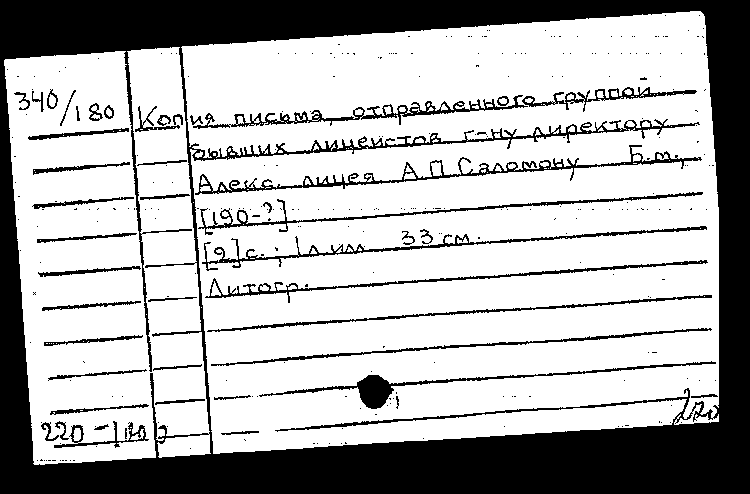 340/180 Копия письма, отправленного группой
бывших лицеистов г-ну директору
Алекс. лицея А.П.Саломону Б.м.,
[190-?]
[2]с.; 1л.илл. 33 см.
Литогр.
220
220